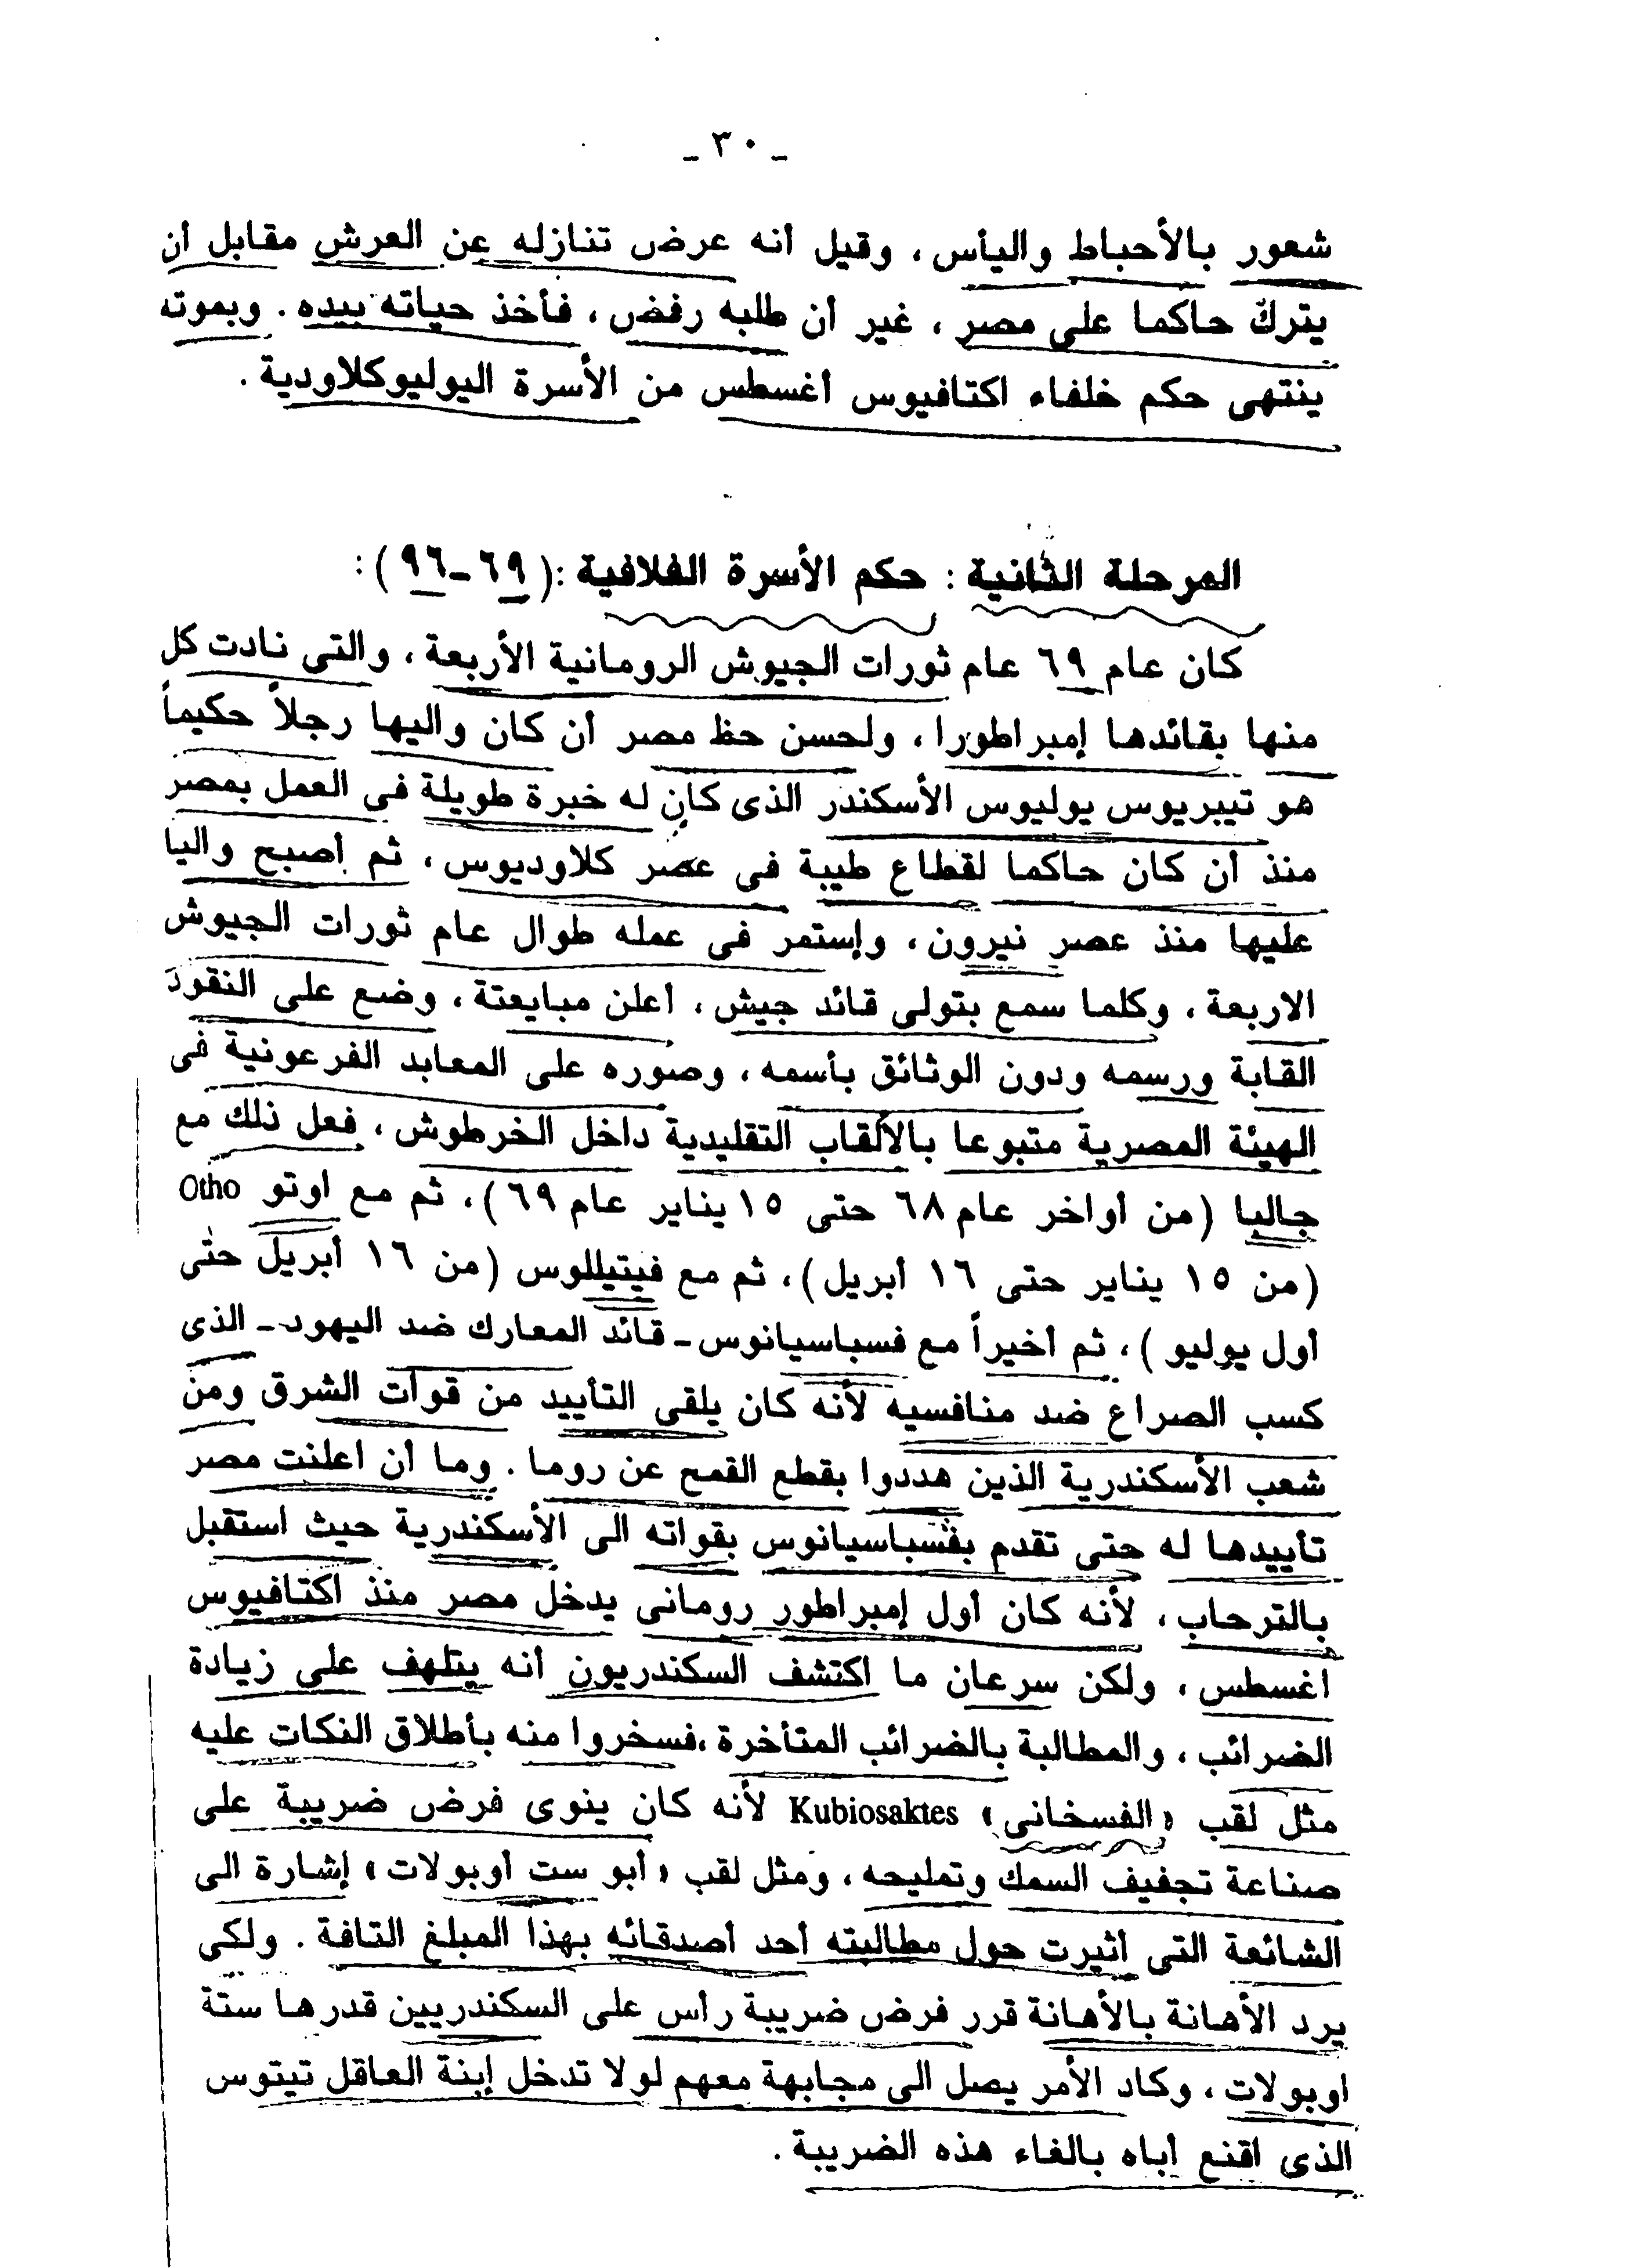 ـ ٣٠ ـ
شعور بالأحباط واليأس ، وقيل أنه عرض تنازله عن العرش مقابل أن
يترك حاكما على مصر ، غير أن طلبه رفض ، فأخذ حياته بيده . وبموته
ينتهى حكم خلفاء اكتافيوس أغسطس من الأسرة اليوليوكلاودية .
المرحلة الثانية : حكم الأسرة الفلافية :(٦٩ــ٩٦) :
كان عام ٦٩ عام ثورات الجيوش الرومانية الأربعة ، والتى نادت كل
منها بقائدها إمبراطورا ، ولحسن حظ مصر أن كان واليها رجلاً حكيماً
هو تيبريوس يوليوس الأسكندر الذى كان له خبرة طويلة فى العمل بمصر
منذ أن كان حاكما لقطاع طيبة فى عصر كلاوديوس ، ثم أصبح واليا
عليها منذ عصر نيرون ، وإستمر فى عمله طوال عام ثورات الجيوش
الاربعة ، وكلما سمع بتولى قائد جيش ، أعلن مبايعتة ، وضع على النقود
القابة ورسمه ودون الوثائق بأسمه ، وصوره على المعابد الفرعونية فى
الهيئة المصرية متبوعا بالألقاب التقليدية داخل الخرطوش ، فعل ذلك مع
جالبا (من أواخر عام ٦٨ حتى ١٥ يناير عام ٦٩) ، ثم مع اوتو Otho
(من ١٥ يناير حتى ١٦ أبريل) ، ثم مع فيتيللوس (من ١٦ أبريل حتى
أول يوليو ) ، ثم أخيراً مع فسباسيانوس ـ قائد المعارك ضد اليهود ـ الذى
كسب الصراع ضد منافسيه لأنه كان يلقى التأييد من قوات الشرق ومن
شعب الأسكندرية الذين هددوا بقطع القمح عن روما . وما أن اعلنت مصر
تأييدها له حتى تقدم بفسباسيانوس بقواته الى الأسكندرية حيث استقبل
بالترحاب ، لأنه كان أول إمبراطور رومانى يدخل مصر منذ اكتافيوس
اغسطس ، ولكن سرعان ما اكتشف السكندريون أنه يتلهف على زيادة
الضرائب ، والمطالبة بالضرائب المتأخرة ،فسخروا منه بأطلاق النكات عليه
مثل لقب «الفسخانى» Kubiosaktes لأنه كان ينوى فرض ضريبة على
صناعة تجفيف السمك وتمليحه ، ومثل لقب «أبو ست أوبولات» إشارة الى
الشائعة التى أثيرت حول مطالبته أحد أصدقائه بهذا المبلغ التافة . ولكى
يرد الأهانة بالأهانة قرر فرض ضريبة رأس على السكندريين قدرها ستة
اوبولات ، وكاد الأمر يصل الى مجابهة معهم لولا تدخل إبنة العاقل تيتوس
الذى اقنع أباه بالغاء هذه الضريبة .